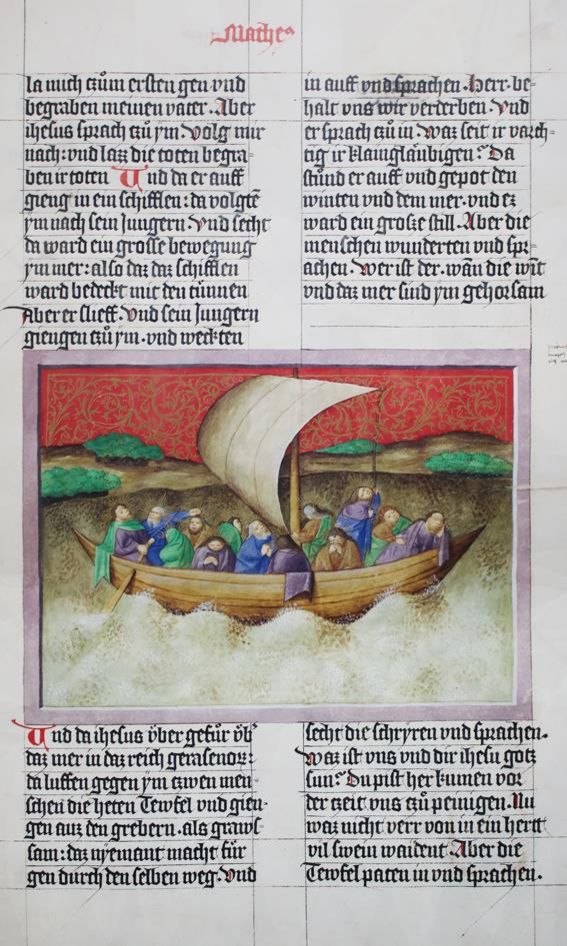 Matheꝰ
la mich czům ersten gen vnd
begraben meinen vater. Aber
ihesus sprach czů ym. Volg mir
nach: vnd lasz die toten begra-
ben ir toten Und da er auff
gieng in ein schifflen: da volgtē
ym nach sein Jungern. Vnd secht
da ward ein grosse bewegung
ym mer: also daz daz schifflen
ward bedeckt mit den tünnen
Aber er slieff. Vnd sein Jungern
giengen czů ym. vnd weckten
in auff vnd sprachen. Herr. be-
halt vns wir verderben. Vnd
er sprach czů in Waz seit ir varch-
tig ir klainglaübigen? Da
stůnd er auff vnd gepot den
winten vnd dem mer. vnd ez
ward ein grosze still. Aber die
menschen wunderten vnd spr-
achen. Wer ist der. wān die wīt
vnd daz mer sind ym gehorsam
Und da ihesus über gefůr üb
daz mer in daz reich gerasenor:
da luffen gegen ym czwen men-
schen die heten Tewfel vnd gien-
gen auz den grebern. als graws-
sam: daz nyemant macht für
gen durch den selben weg. Vnd
secht die schryren vnd sprachen.
Waz ist vns vnd dir ihesu gotz
sun? Du pist her kumen vor
der czeit vns czů peinigen. Nu
waz nicht verr von in ein hertt
vil swein waident. Aber die
Tewfel paten in vnd sprachen.